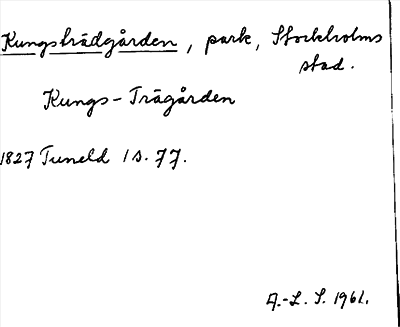 Kungsträdgården, park, Stockholms
stad.
Kungs-Trägården
1827 Tuneld 1 s. 77.
A.-L. S. 1961.